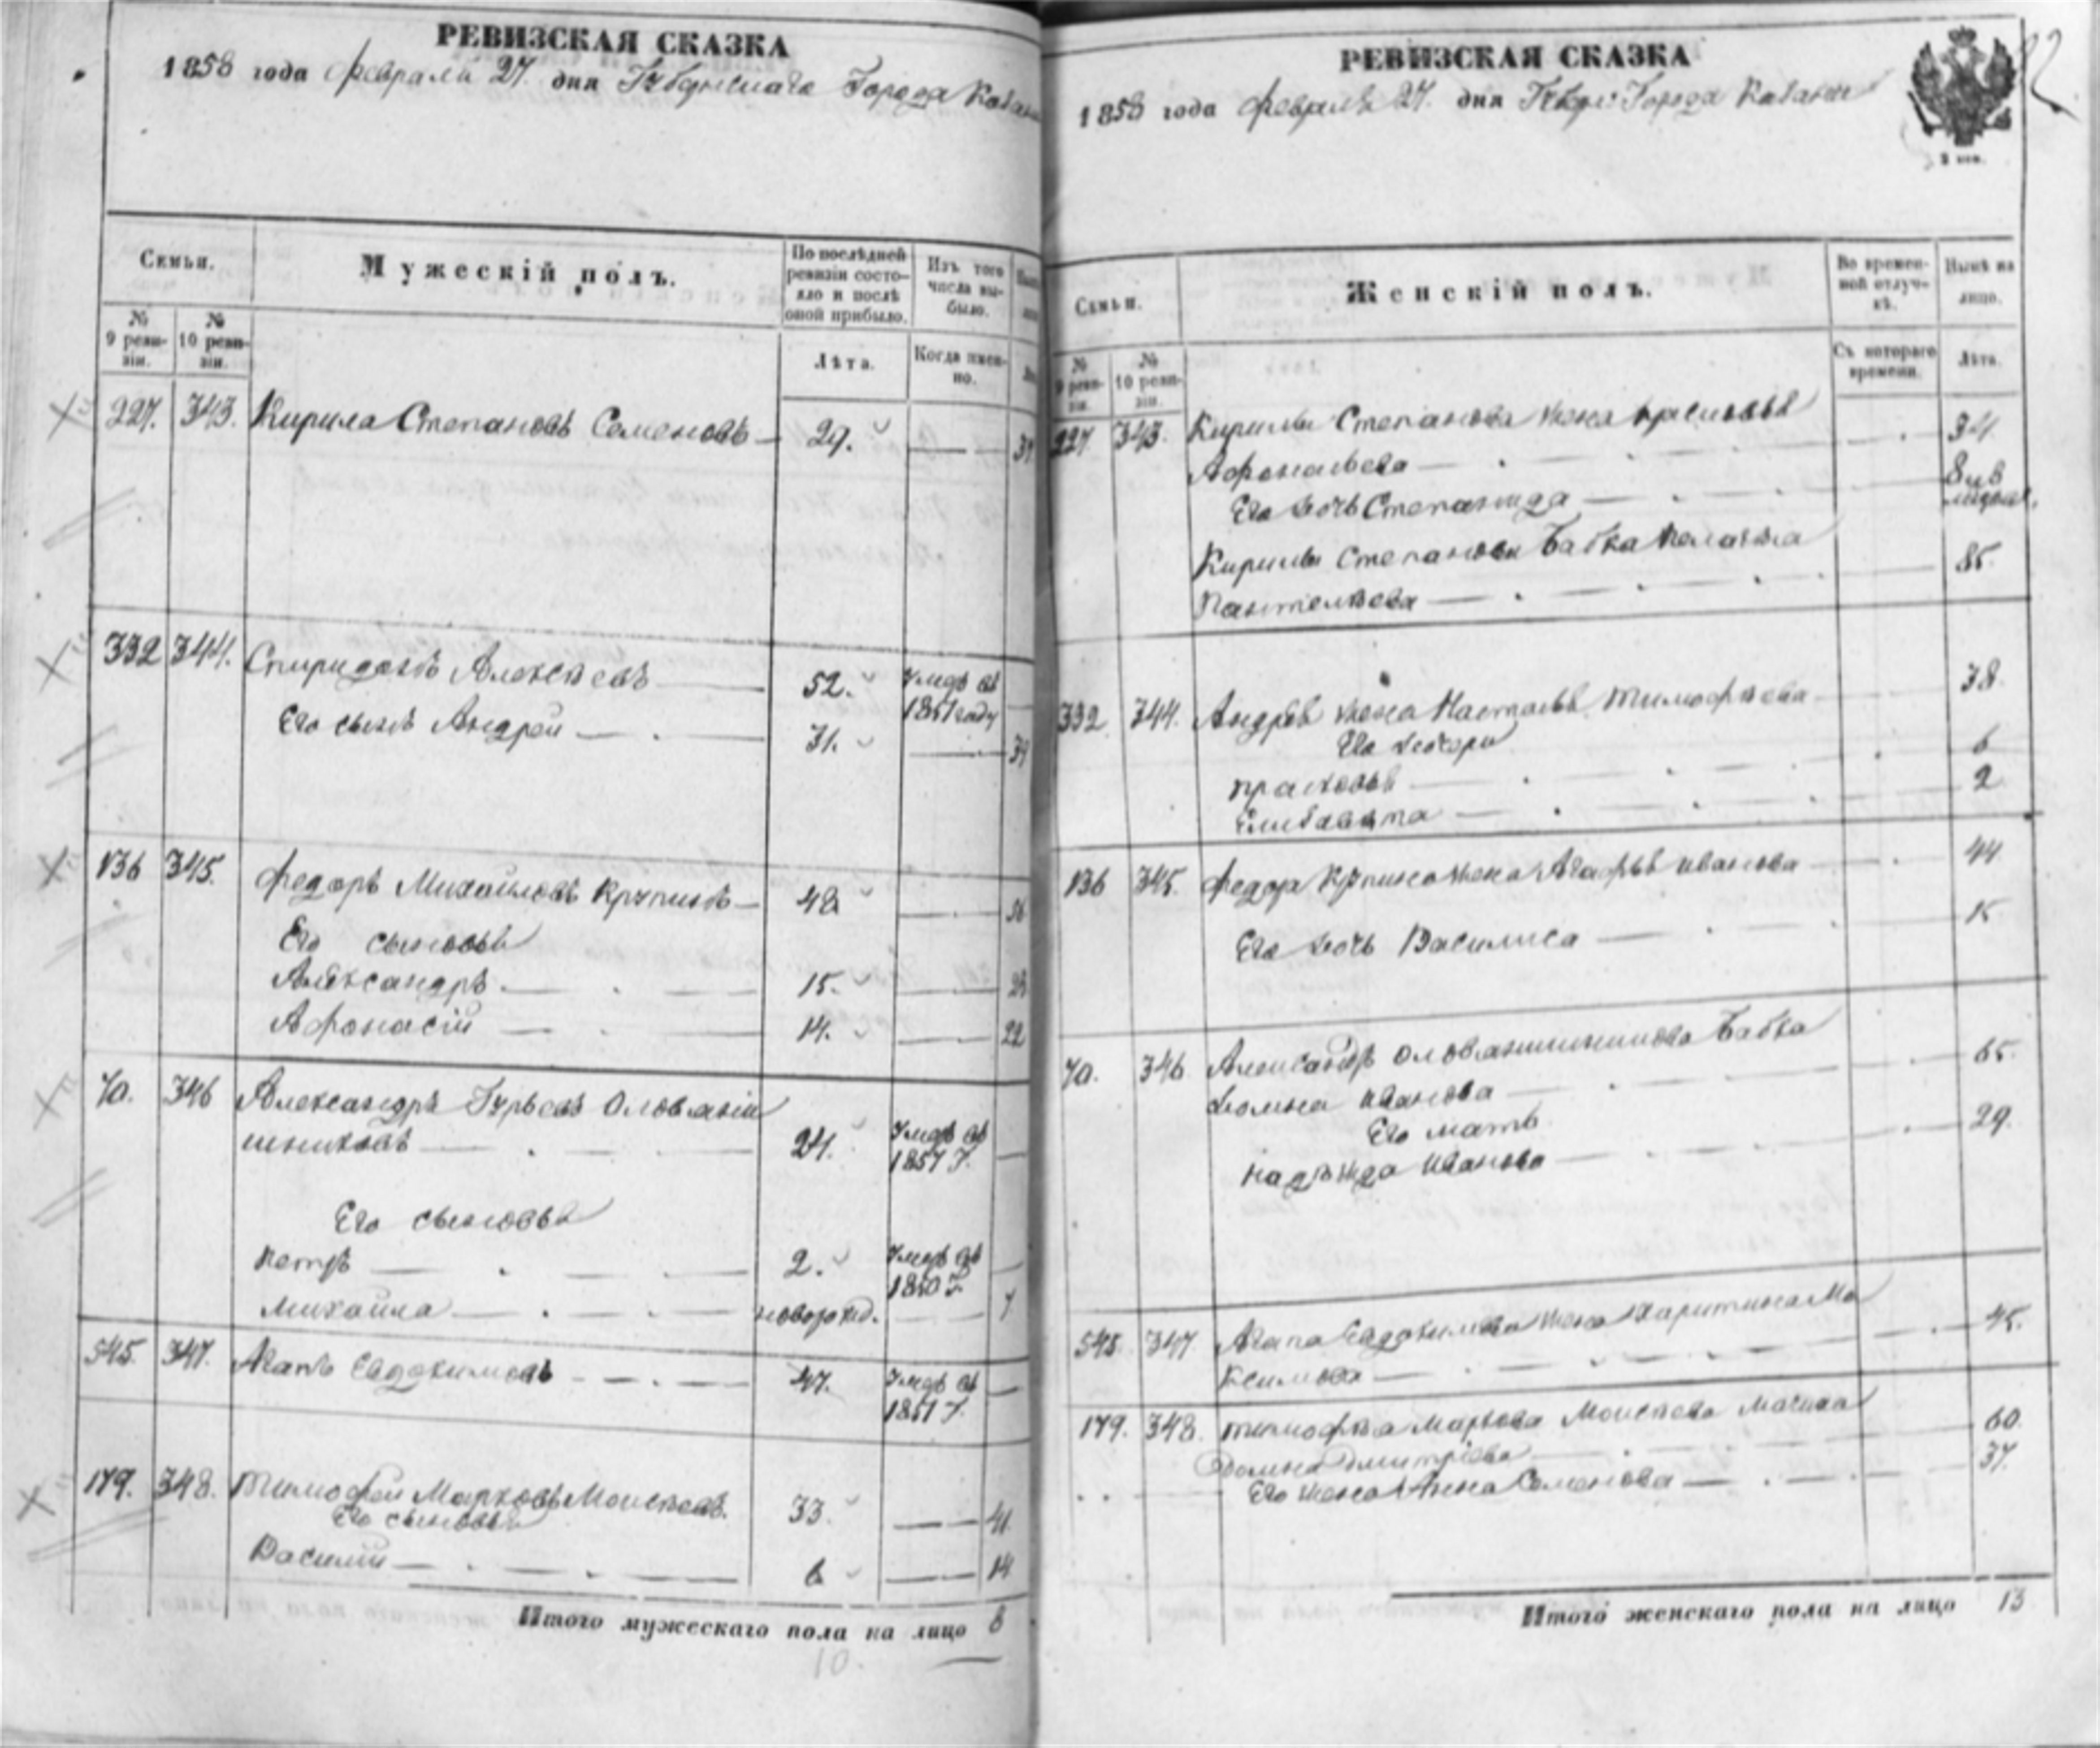 РЕВИЗСКАЯ СКАЗКА
1858 года февраля 27. дня Губернскаго Города Казани
Семьи.
Мужескій полъ.
По послѣдней ревизіи состояло и послѣ оной прибыло.
Изъ того числа выбыло.
№ 9 ревизіи.
№ 10 ревизіи.
Лѣта.
Когда именно.
227. 343. Кирила Степановъ Семеновъ 29.
332 344. Спиридонъ Алексѣевъ 52. Умеръ въ 1851 году
Его сынъ Андрей 31.
136 345. Федоръ Михайловъ Крупинъ 48
Его сыновья
Александръ 15. 23
Афонасій 14. 22
70. 346 Александръ Гурьевъ Оловяніш
шниковъ 24. Умеръ въ 1857 г.
Его сыновья
Петръ 2. Умеръ въ 1850 г.
Михайла новорожд. 7
545. 347. Агапъ Евдокимовъ 47. Умеръ въ 1851 г.
179. 348. Тимофей Марковъ Моисѣевъ. 33. 41.
Его сыновья
Василій 6 14
Итого мужескаго пола на лицо 8
10.
РЕВИЗСКАЯ СКАЗКА
1858 года февраля 27. дня Губер: Города Казани
Семьи.
Женскій полъ.
Во временной отлучкѣ.
Нынѣ на лицо.
№ 9 ревизіи.
№ 10 ревизіи.
Съ котораго времени.
Лѣта.
227 343. Кирилы Степанова жена
Афонасьева 34.
Его дочь Степанида
Кирилы Степанова бабка Пелагѣя
Пантелѣева 85.
332 344. Андрея жена Настасья Тимофѣева 38.
Его дочери
Прасковья 6
Елизавета 2
136 345. Федора Крупина жена Агафья Иванова 44
Его дочь Василиса 15
70. 346 Александра Оловяншишникова бабка
Домна Иванова 65.
Его мать
Надѣжда Иванова 29.
545 347 Агапа Евдокимова жена Харитина Ма
ксимова 45.
179. 348. Тимофѣя Маркова Моисѣева мачиха
Домна Дмитріева 60.
Его жена Анна Семенова 37.
Итого женскаго пола на лицо 13